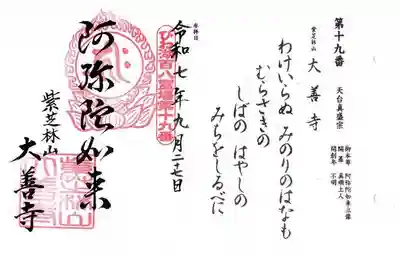 第十九番 天台真盛宗
御本尊 阿弥陀如来立像
開基 真盛上人
開創年 不明
紫芝林山 大善寺
わけいらぬ みのりのはなも
むらさきの
しばの はやしの
みちをしるべに
令和七年九月二七日
びわ湖百八霊場第十九番
阿弥陀如来
紫芝林山
大善寺